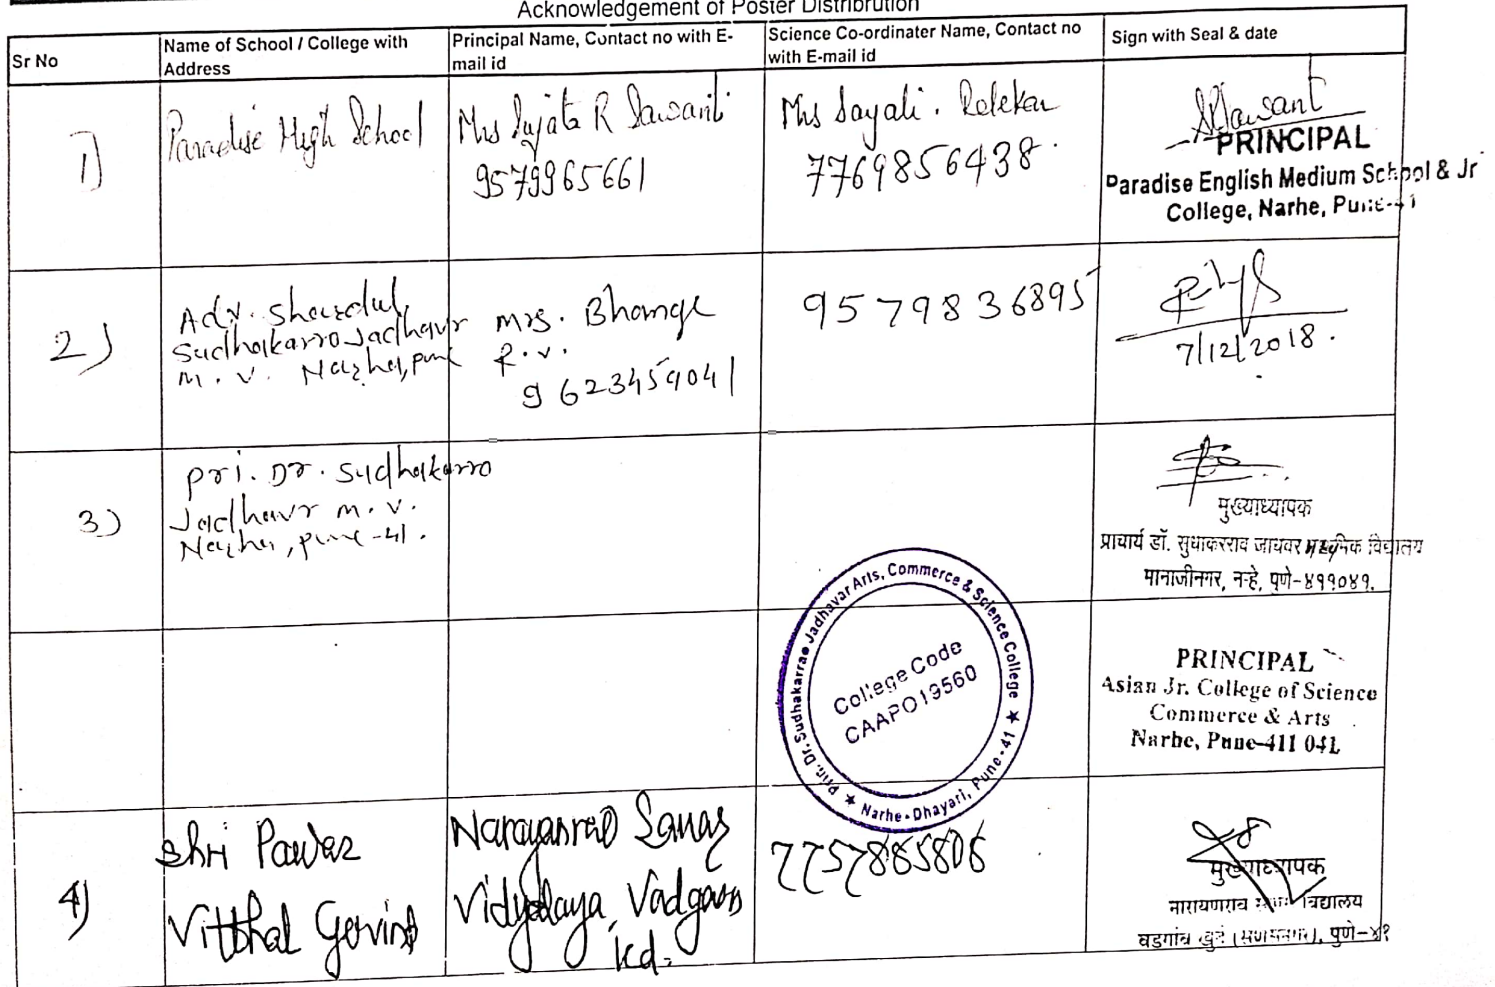 Acknowledgement of Poster Distribrution
Sr No
Name of School / College with
Address
Principal Name, Contact no with E-
mail id
Science Co-ordinater Name, Contact no
with E-mail id
Sign with Seal & date
1)
Paradise High School
Mrs Sujata R Sawant
9579965661
Mrs Sayali. Relekar
7769856438.
PRINCIPAL
Paradise English Medium School & Jr
College, Narhe, Pune-41
2)
Adv. Shardul
Sudhakarro Jadhavr
M. V. Narhe, pune
Mrs. Bhange
R. V.
9623459041
9579836895
7/12/2018.
3)
pri. Dr. Sudhakarro
Jadhavr M. V.
Narhe, pune-41.
मुख्याध्यापक
प्राचार्य डॉ. सुधाकरराव जाधवर माध्यमिक विद्यालय
मानाजीनगर, नऱ्हे, पुणे-४११०४१.
Prin. Dr. Sudhakarrao Jadhavar Arts, Commerce & Science College
Narhe - Dhayari, Pune - 41
College Code
CAAPO19560
PRINCIPAL
Asian Jr. College of Science
Commerce & Arts
Narhe, Pune-411 041.
4)
Shri Pawar
Vitthal Govind
Narayanrao Sanas
Vidyalaya, Vadgaon
kd.
7757865806
मुख्याध्यापक
नारायणराव सणस विद्यालय
वडगांव खुर्द (सणसनगर), पुणे-४१